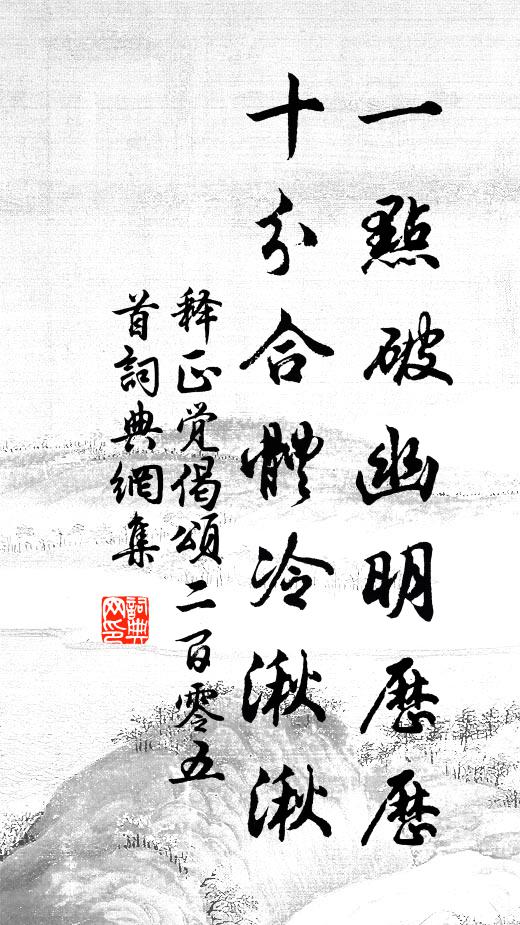 一點破幽明歷歷
十分合體冷湫湫
释正觉偈頌二百零五
首詞典網集
詞典
网印